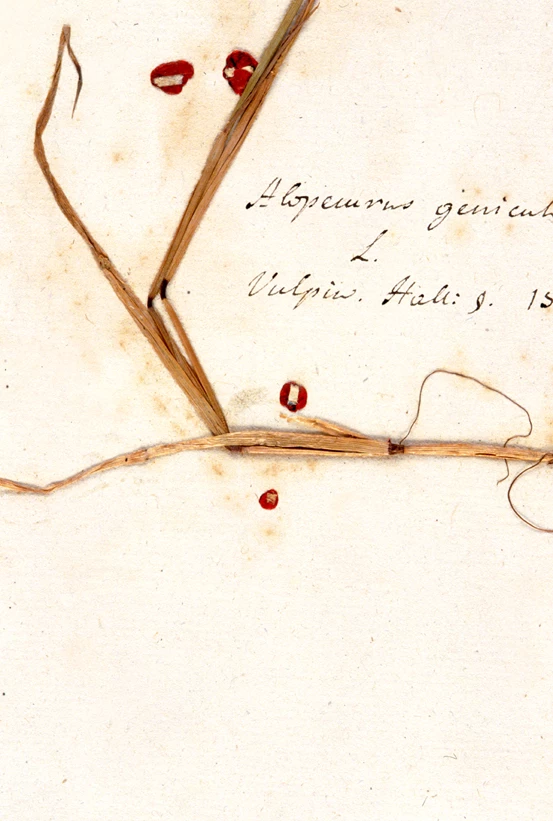 Alopecurus genicul
L.
Vulpin. Hall: g. 15